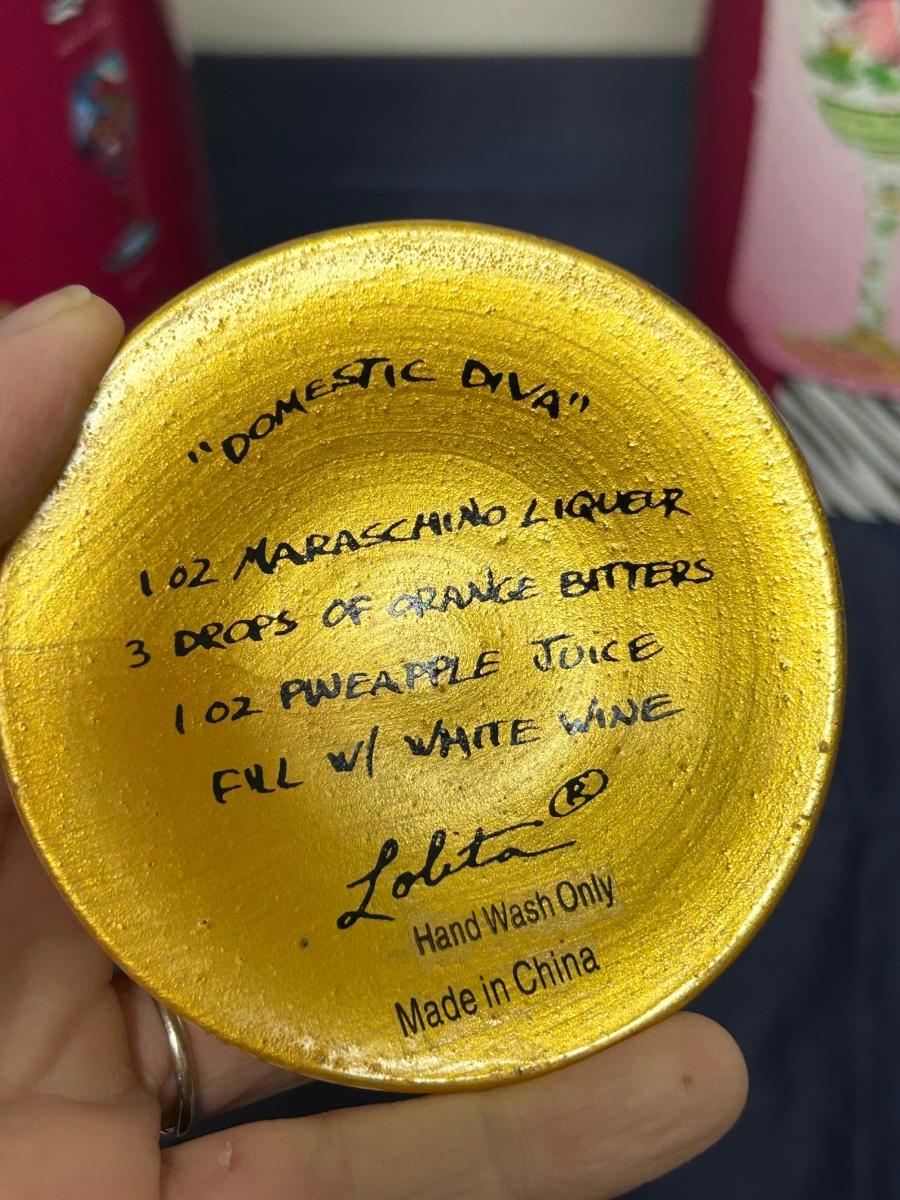 "DOMESTIC DIVA"
1 OZ MARASCHINO LIQUEUR
3 DROPS OF ORANGE BITTERS
1 OZ PINEAPPLE JUICE
FILL W/ WHITE WINE
Lolita®
Hand Wash Only
Made in China